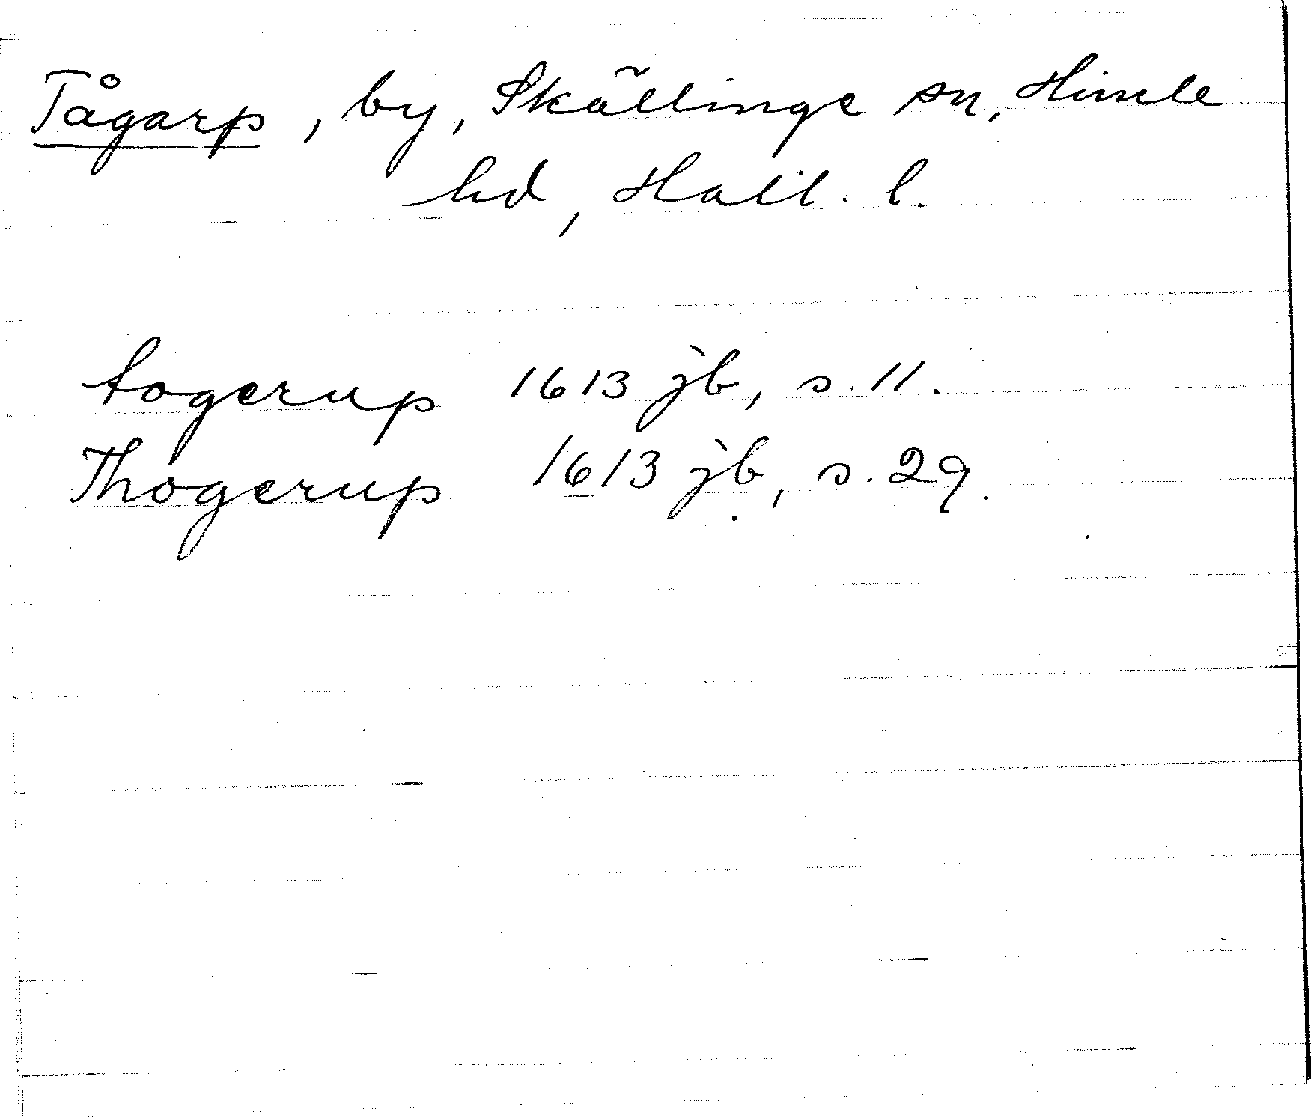 Tågarp, by, Skällinge sn, Himle
hd, Hall. l.
togerup 1613 jb, s. 11.
Thogerup 1613 jb, s. 29.